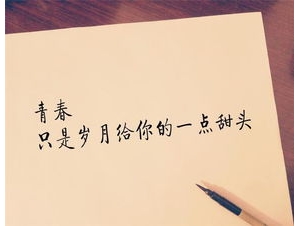 青春
只是岁月给你的一点甜头